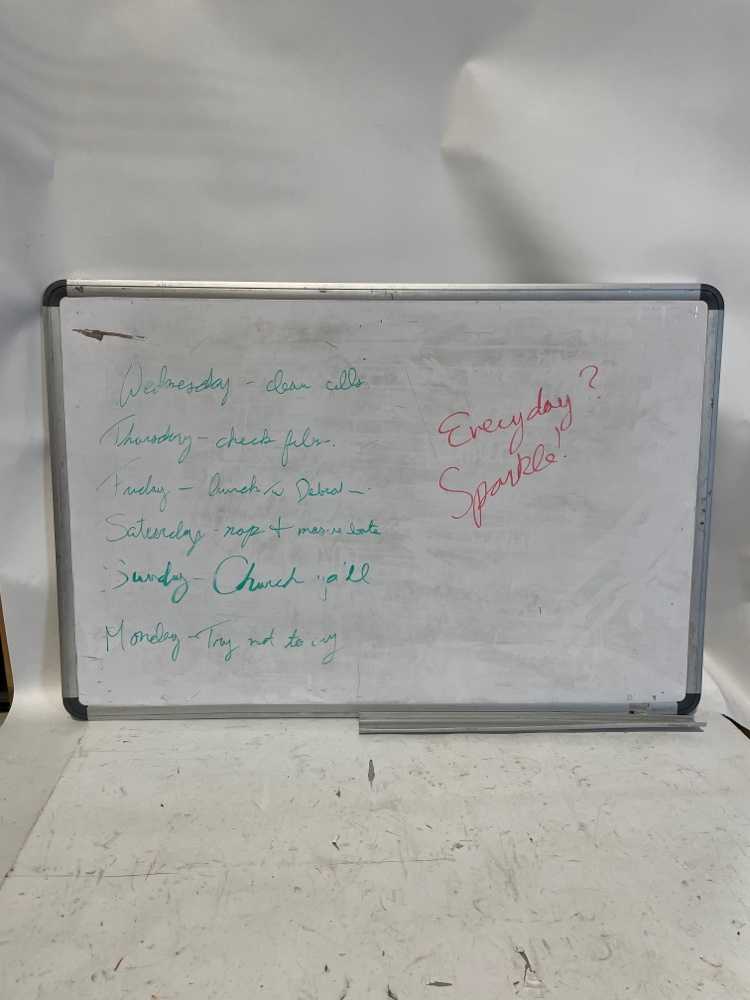 Wednesday - clean cells
Thursday - check film.
Friday - lunch w Debra
Saturday - nap +
Sunday - Church y'all
Monday - Try not to cry
Everyday?
Sparkle!